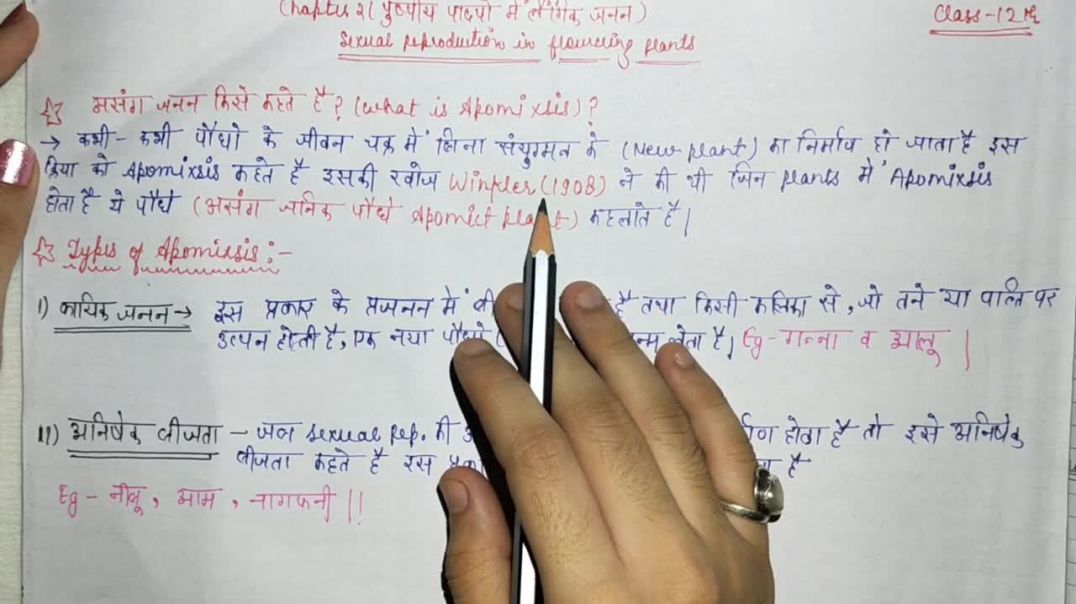 Chapter 2( पुष्पीय पादपों में लैंगिक जनन)
Class-12th
Sexual reproduction in flowering plants
असंग जनन किसे कहते है? (What is Apomixsis)?
→ कभी-कभी पौधो के जीवन चक्र में बिना संयुग्मन के (New plant) का निर्माण हो जाता है इस
क्रिया को Apomixsis कहते है इसकी खोज Winkler (1908) ने की थी जिन plants में Apomixsis
होता है ये पौधे (असंग जनिक पौधे Apomict plant) कहलाते है|
Types of Apomixsis:-
I) कायिक जनन→ इस प्रकार के प्रजनन में बी है तथा किसी कलिका से, जो तने या पत्ति पर
उत्पन होती है, एक नया पौधा लेता है| Eg-गन्ना व आलू |
II) अनिषेक बीजता - जब sexual rep. की होता है तो इसे अनिषेक
बीजता कहते है इस है
Eg - नीबू, आम, नागफनी ||